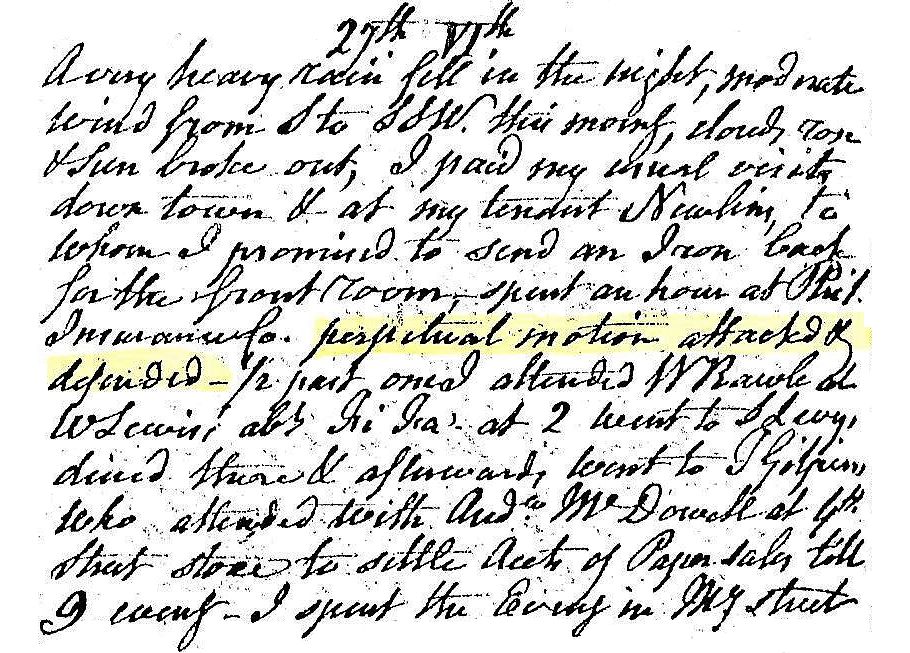 27th VIth
A very heavy rain fell in the night, moderate
wind from S to SSW. this morng, clouds rose
& Sun broke out, I paid my usual visits
down town & at my tenant Newlins, to
whom I promised to send an Iron back
for the front room, spent an hour at Phil.
Insurance Co. perpetual motion attacked &
defended – 1/2 past one I attended W Rawle at
W Lewis's abt Fi Fa. at 2 went to S Levy,
dined there & afterwards went to J Gilpins,
who attended with Andw McDowell at 4th
Street store to settle Accts of Paper sales till
9 eveng – I spent the Eveng in Mg street